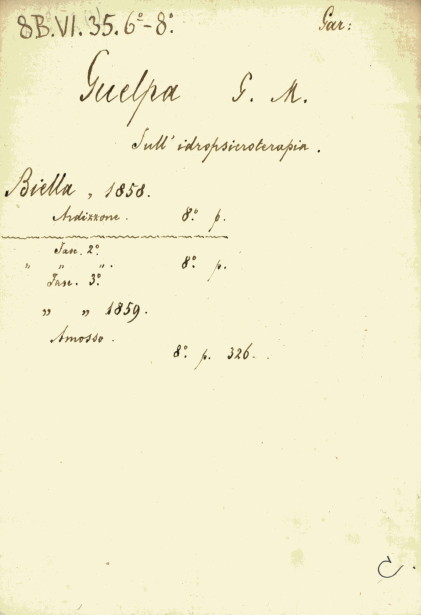 8B.VI.35.6°-8°. Gar:
Guelpa G. M.
Sull' idropsicroterapia.
Biella, 1858.
Ardizzone. 8.° p.
Fasc. 2.°
" " ". 8.° p.
Fasc. 3.°
" " 1859.
Amosso.
8.° p. 326.
C.